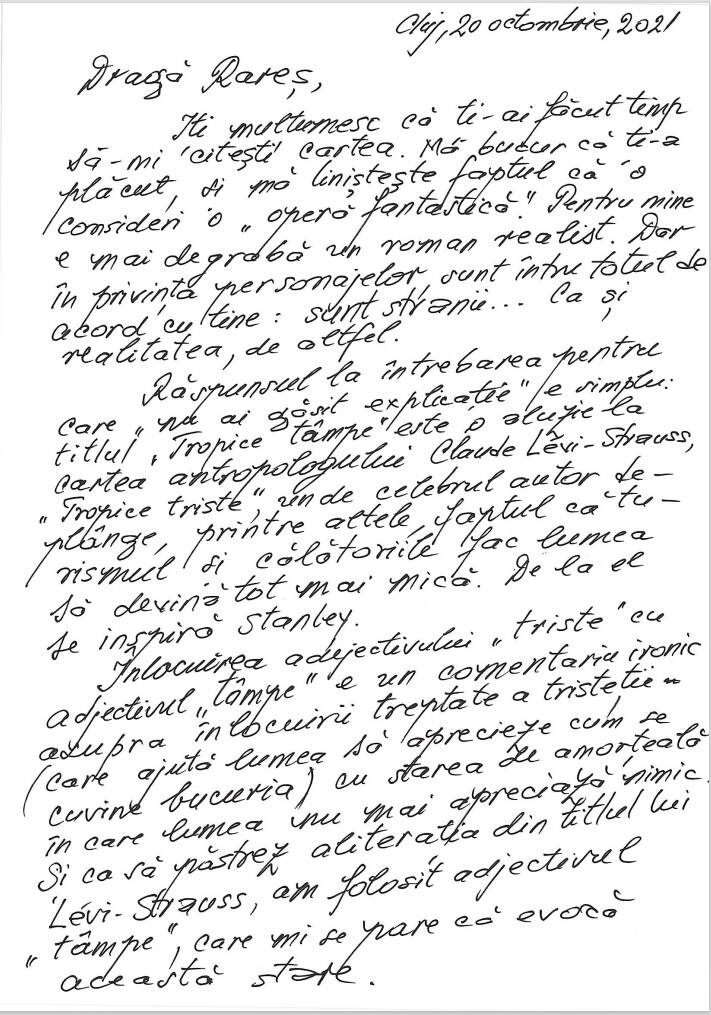 Cluj, 20 octombrie, 2021
Dragă Rareș,
Iti multumesc că ti-ai făcut timp
să-mi citești cartea. Mă bucur că ti-a
plăcut, si mă liniștește faptul că o
consideri o „operă fantastică". Pentru mine
e mai degrabă un roman realist. Dar
în privința personajelor, sunt întru totul de
acord cu tine: sunt stranii... Ca și
realitatea, de altfel.
Răspunsul la întrebarea pentru
care „nu ai găsit explicatie" e simplu:
titlul „Tropice tâmpe" este o aluzie la
cartea antropologului Claude Lévi-Strauss,
"Tropice triste", unde celebrul autor de-
plânge, printre altele, faptul ca tu-
rismul si călătoriile fac lumea
să devină tot mai mică. De la el
se inspiră Stanley.
Înlocuirea adjectivului „triste" cu
adjectivul „tâmpe" e un comentariu ironic
asupra înlocuirii treptate a tristetii
(care ajută lumea să aprecieze cum se
cuvine bucuria) cu starea de amorțeală
în care lumea nu mai apreciază nimic.
Si ca să păstrez aliterația din titlul lui
Lévi-Strauss, am folosit adjectivul
"tâmpe", care mi se pare că evocă
această stare.